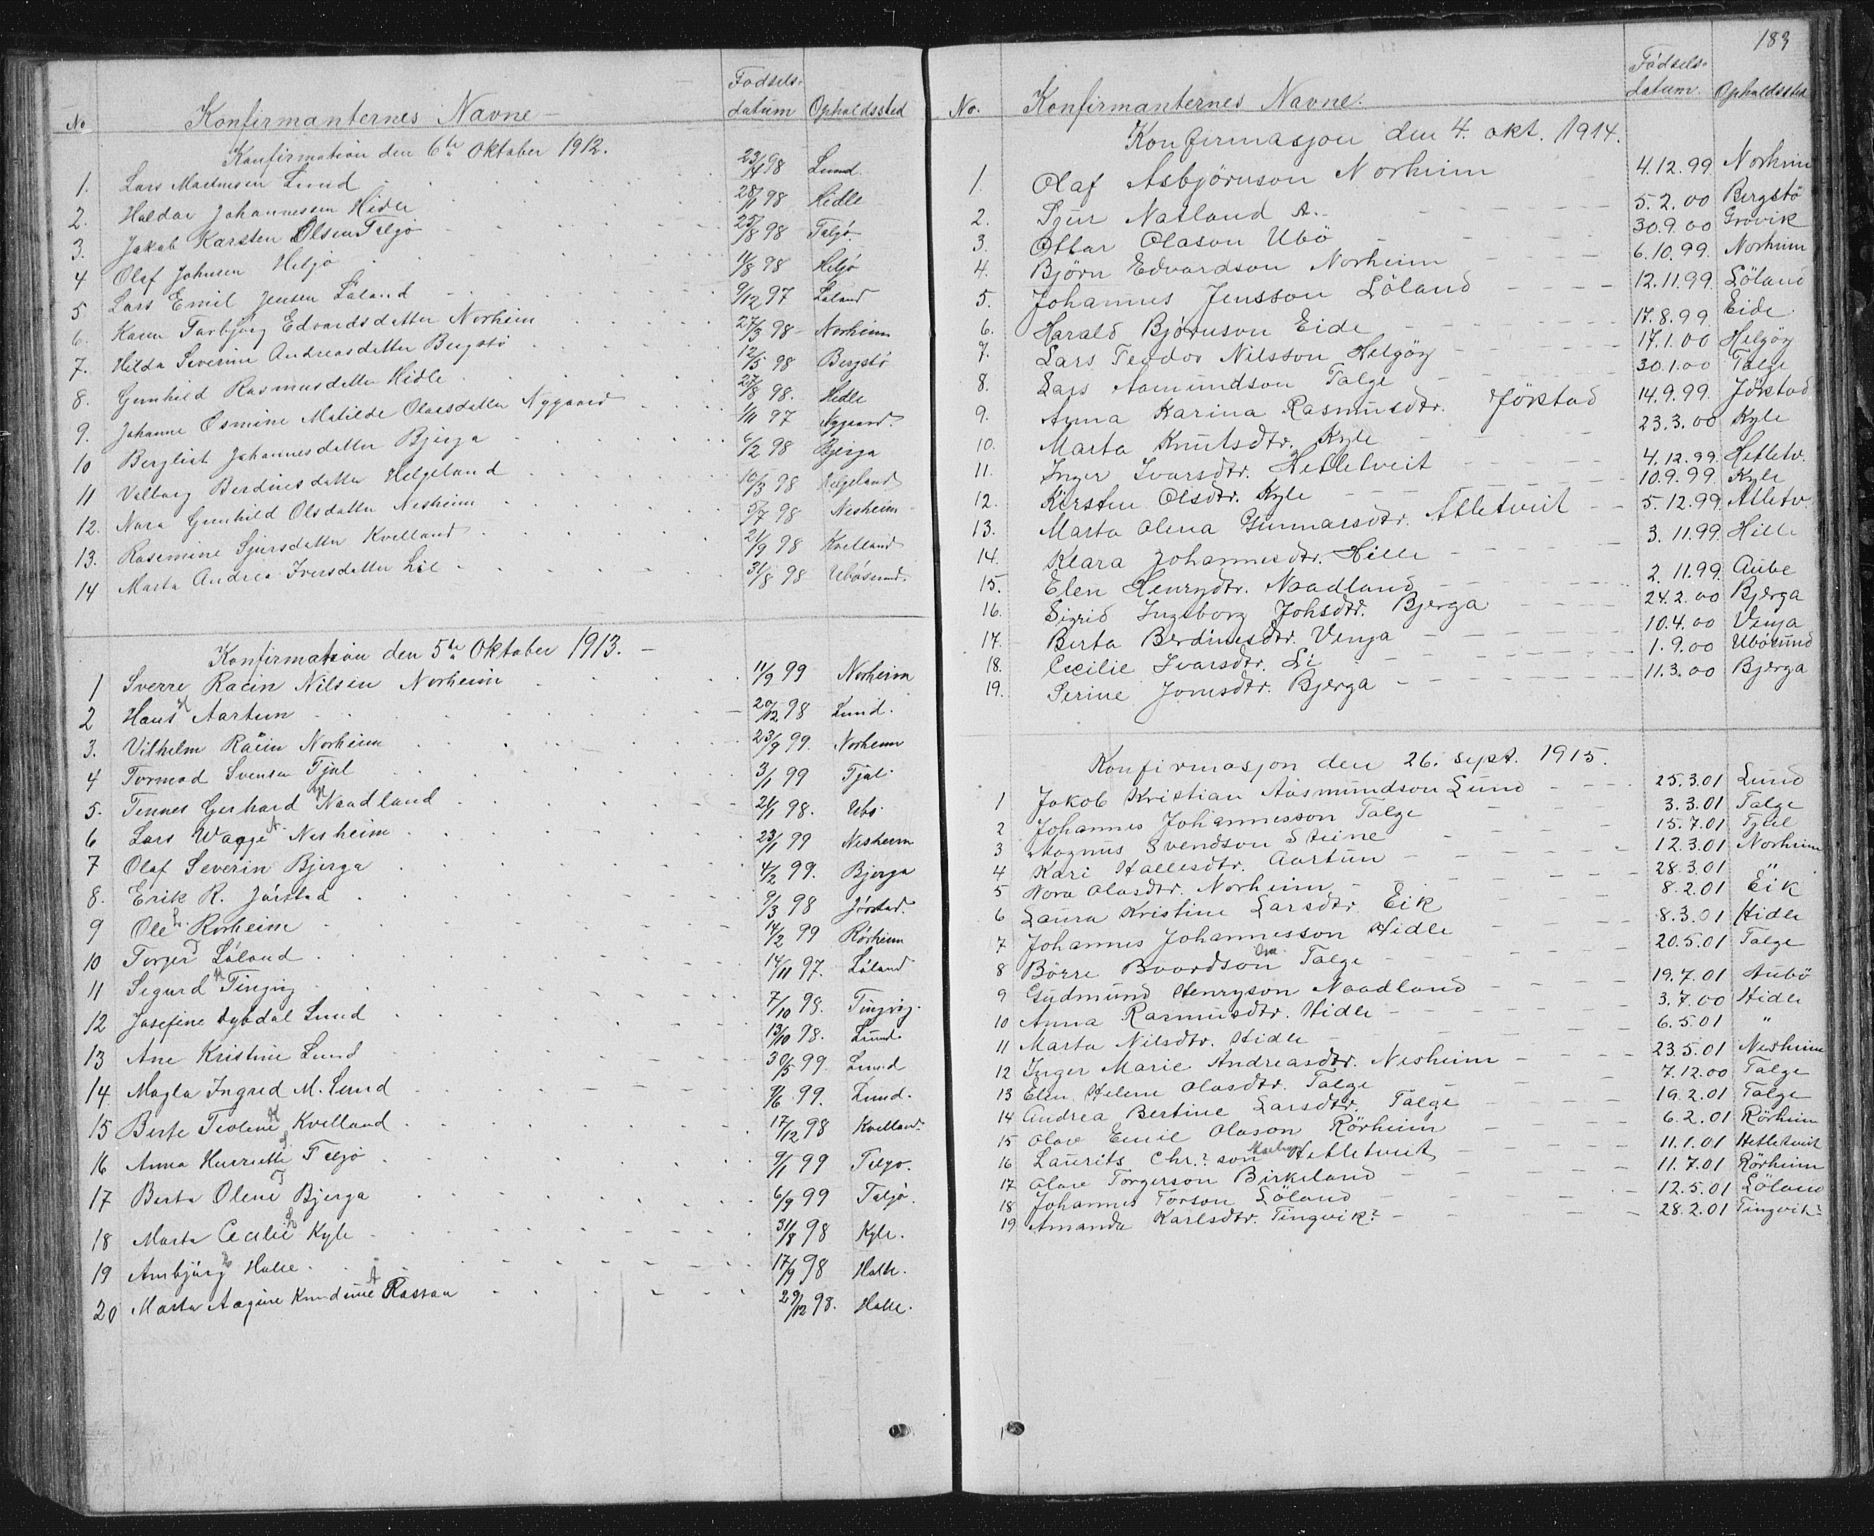 No Konfirmanternes Navne Fødsels-datum Opholdssted
Konfirmation den 6te Oktober 1912.
1. Lars Lund 23/4 98 Lund.
2. Haldor Johannessen Hidle 28/1 98 Hidle
3. Jakob Karsten Olsen Talgø 25/8 98 Talgø.
4 Olaf Johnsen Helgø 14/8 98 Helgø
5 Lars Emil Jensen Løland 9/12 97 Løland
6. Karen Torbjørg Edvardsdatter Norheim 27/3 98 Norheim
7. Hilda Severine Andreasdatter Bergstø 12/5 98 Bergstø
8. Gunhild Rasmusdatter Hidle 27/8 98. Hidle
9. Johanne Osmine Matilde Olausdatter Nygaard 1/11 97 Nygaard.
10 Bergliot Johannesdatter Bjerga 6/2 98 Bjerga
11 Valborg Berdinesdatter Helgeland 10/3 98 Helgeland
12. Nora Gunhild Olsdatter Nesheim 5/7 98 Nesheim
13. Rasmine Sjursdatter Kvelland 21/9 98 Kvelland
14 Marta Andrea Iversdatter Lie 31/8 98 Ubøsund.
Konfirmation den 5te Oktober 1913.
1 Sverre Racin Nilsen Norheim 11/9 99 Norheim
2 Hans Aartun 20/12 98 Lund.
3. Vilhelm Racin Norheim 23/9 99 Norheim
4 Tormod Svensen Tjul 3/1 99 Tjul
5. Tennes Gerhard N Naadland 21/1 98. Ubø
6 Lars Waage A Nesheim 23/1 99 Nesheim
7 Olaf Severin Bjerga 4/2 99. Bjerga
8. Erik R. Jørstad 9/3 98 Jørstad.
9 Ole Rørheim 14/2 99 Rørheim
10 Torger Løland 14/11 97. Løland
11 Sigurd Tingvig 7/10 98. Tingvig.
12 Josefine Dybdal Lund 13/10 98. Lund
13 Ane Kristine Lund 30/5 99. Lund
14. Magla Ingrid M. Lund 9/6 99. Lund.
15 Berte Teoline K Kvelland 17/12 98 Kvelland
16 Anna Henriette Talgø 9/1 99 Talgø.
17 Berta Oline Bjerga 6/9 99 Talgø.
18 Marta Cecilie Kyle 31/8 98 Kyle.
19 Ambjørg Halle. 17/9 98 Halle.
20 Marta Aagine Knudine A Rossau 29/12 98. Halle.
183
No. Konfirmanternes Navne. Fødsels-datum. Opholdssted
Konfirmasjon den 4. okt. 1914.
1. Olaf Asbjørnson Norheim 4.12.99 Norheim
2. Sjur Natland A. 5.2.00 Bergstø
3. Ottar Olason Ubø 30.9.00 Grövik
4. Bjørn Edvardson Norheim 6.10.99. Norheim
5. Johannes Jensson Löland 12.11.99 Löland
6. Harald Bjørnson Eide 17.8.99 Eide.
7. Lars Teodor Nilsson Helgöy 17.1.00 Helgöy
8. Lars Aamundson Talge 30.1.00 Talge
9. Anna Karina Rasmusdtr. Jörstad 14.9.99. Jörstad
10. Marta Knutsdtr. Kyle 23.3.00 Kyle
11. Inger Ivarsdtr. Hetletveit 4.12.99. Hetletv.
12. Kersten Olsdtr. Kyle 10.9.99 Kyle
13. Marta Olena Gunnarsdtr. Atletveit 5.12.99 Atletv.
14. Klara Johannesdtr. Hille 3.11.99 Hille
15. Elen Henrydtr. Naadland 2.11.99. Aubø
16. Sigrid Ingeborg Johsdtr. Bjerga 24.2.00 Bjerga
17. Berta Berdinesdtr. Venja 10.4.00 Venja
18. Cecilie Ivarsdtr. Li 1.9.00 Ubösund
19. Serine Jonsdtr. Bjerga 11.3.00 Bjerga
Konfirmasjon den 26. sept. 1915.
1 Jakob Kristian Aasmundson Lund 25.3.01 Lund
2 Johannes Johannesson Talge 3.3.01 Talge
3 Magnus Svendson Steine 15.7.01
4 Kari Hallesdtr. Aartun 12.3.01 Norheim
5 Nora Olasdtr. Norheim 28.3.01 "
6 Laura Kristine Larsdtr. Eik 8.2.01 Eik
7 Johannes Johannesson Hidle 8.3.01 Hidle
8 Börre Baardson Talge 20.5.01 Talge
9 Gudmund Henryson Naadland 19.7.01 Aubö
10 Anna Rasmusdtr. Hidle 3.7.00 Hidle
11 Marta Nilsdtr. Hidle 6.5.01 "
12 Inger Marie Andreasdtr. Nesheim 23.5.01 Nesheim
13 Elen Helene Olasdtr. Talge 7.12.00 Talge
14 Andrea Bertine Larsdtr. Talge 19.2.01 Talge
15 Olav Emil Olason Rörheim 6.2.01 Rörheim
16 Laurits Chr.?son Hetletveit 11.1.01 Hetletveit
17 Olav Torgerson Birkeland 11.7.01 Rörheim
18 Johannes Torson Löland 12.5.01 Löland
19 Amanda Karlsdtr. Tingvik? 28.2.01 Tingvik?